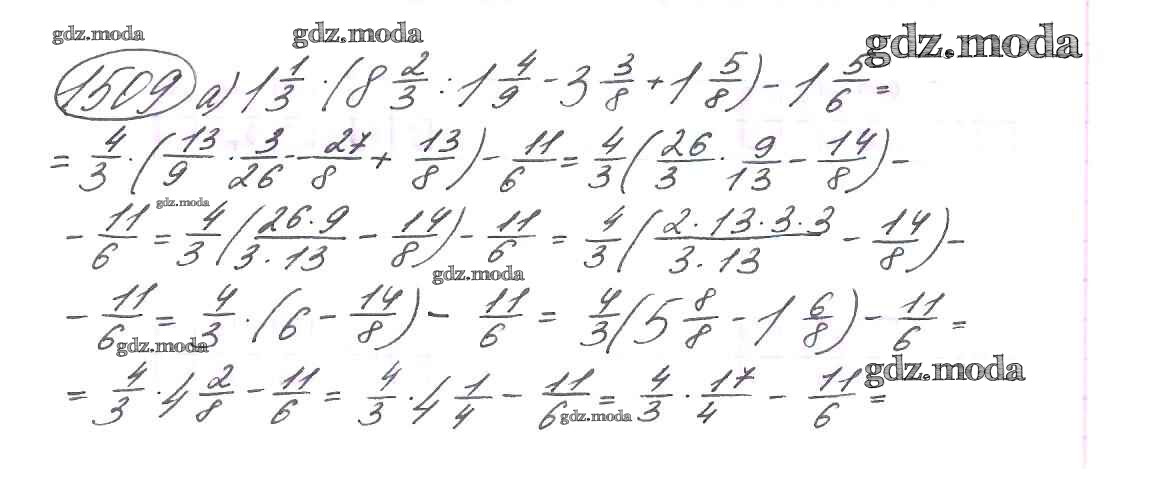 gdz.moda gdz.moda gdz.moda
1509 а) 1 1/3 · (8 2/3 : 1 4/9 - 3 3/8 + 1 5/8) - 1 5/6 =
= 4/3 · (13/9 · 3/26 - 27/8 + 13/8) - 11/6 = 4/3 (26/3 · 9/13 - 14/8) -
gdz.moda
- 11/6 = 4/3 (26·9/3·13 - 14/8) - 11/6 = 4/3 (2·13·3·3/3·13 - 14/8) -
gdz.moda
- 11/6 = 4/3 · (6 - 14/8) - 11/6 = 4/3 (5 8/8 - 1 6/8) - 11/6 =
gdz.moda gdz.moda
= 4/3 · 4 2/8 - 11/6 = 4/3 · 4 1/4 - 11/6 = 4/3 · 17/4 - 11/6 =
gdz.moda